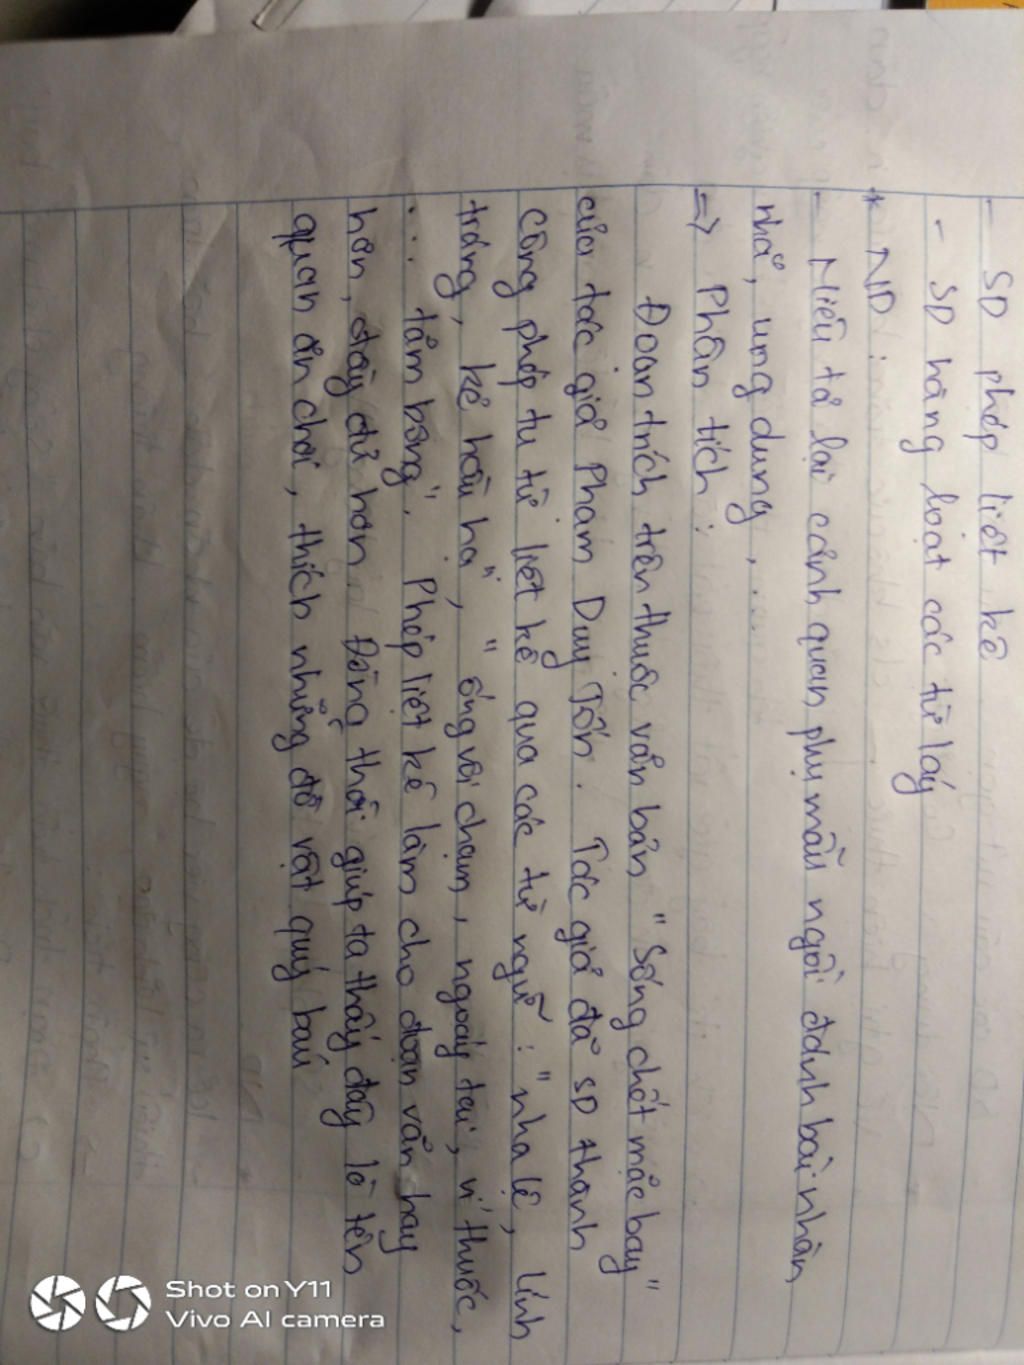 - SD phép liệt kê
- SD hàng loạt các từ láy
* ND:
- Miêu tả lại cảnh quan phụ mẫu ngồi đánh bài nhàn
nhã, ung dung,...
=> Phân tích:
Đoạn trích trên thuộc văn bản "Sống chết mặc bay"
của tác giả Phạm Duy Tốn. Tác giả đã SD thành
công phép tu từ liệt kê qua các từ ngữ: "nha lệ, lính
tráng, kẻ hầu hạ", "ống vôi chạm, ngoáy tai, ví thuốc,
... tăm bông". Phép liệt kê làm cho đoạn văn hay
hơn, đầy đủ hơn. Đồng thời giúp ta thấy đây là tên
quan ăn chơi, thích những đồ vật quý báu
Shot on Y11
Vivo AI camera